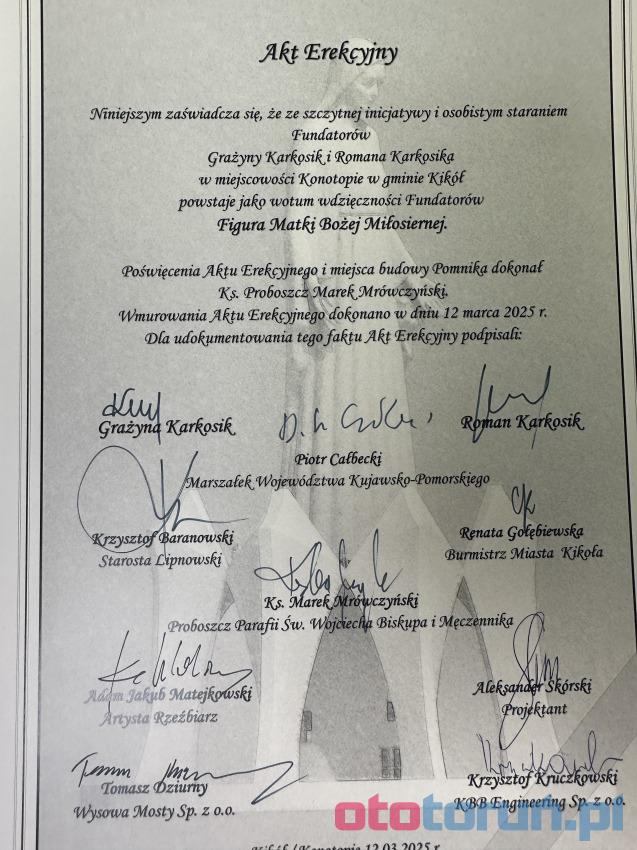 Akt Erekcyjny
Niniejszym zaświadcza się, że ze szczytnej inicjatywy i osobistym staraniem
Fundatorów
Grażyny Karkosik i Romana Karkosika
w miejscowości Konotopie w gminie Kikół
powstaje jako wotum wdzięczności Fundatorów
Figura Matki Bożej Miłosiernej.
Poświęcenia Aktu Erekcyjnego i miejsca budowy Pomnika dokonał
Ks. Proboszcz Marek Mrówczyński.
Wmurowania Aktu Erekcyjnego dokonano w dniu 12 marca 2025 r.
Dla udokumentowania tego faktu Akt Erekcyjny podpisali:
Grażyna Karkosik
Roman Karkosik
Piotr Całbecki
Marszałek Województwa Kujawsko-Pomorskiego
Krzysztof Baranowski
Starosta Lipnowski
Renata Gołębiewska
Burmistrz Miasta Kikoła
Ks. Marek Mrówczyński
Proboszcz Parafii Św. Wojciecha Biskupa i Męczennika
Adam Jakub Matejkowski
Artysta Rzeźbiarz
Aleksander Skórski
Projektant
Tomasz Dziurny
Wysowa Mosty Sp. z o.o.
Krzysztof Kruczkowski
KBB Engineering Sp. z o.o.
ototorun.pl
Kikół / Konotopie 12.03.2025 r.